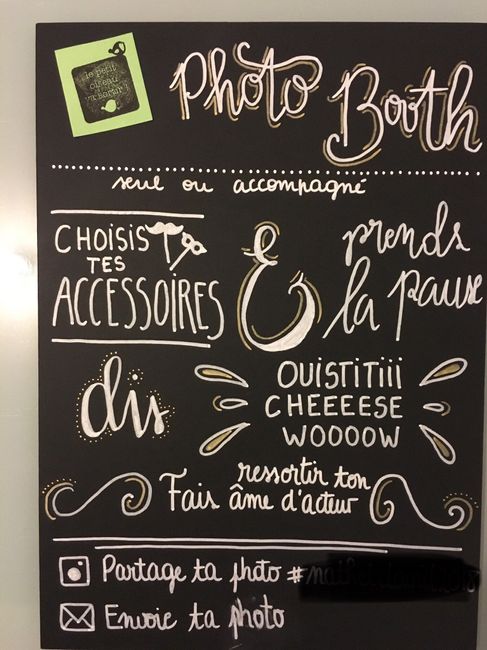 le petit
oiseau
va sortir !
Photo Booth
seul ou accompagné
CHOISIS
TES
ACCESSOIRES
&
prends
la pause
dis
OUISTITIIII
CHEEEESE
WOOOOW
Fais ressortir ton
âme d'acteur
Partage ta photo #
Envoie ta photo